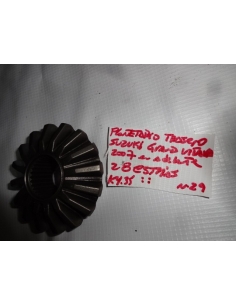 PLANETARIO TRASERO
SUZUKI GRAND VITARA
2007 en adelante
28 ESTRIAS
n29